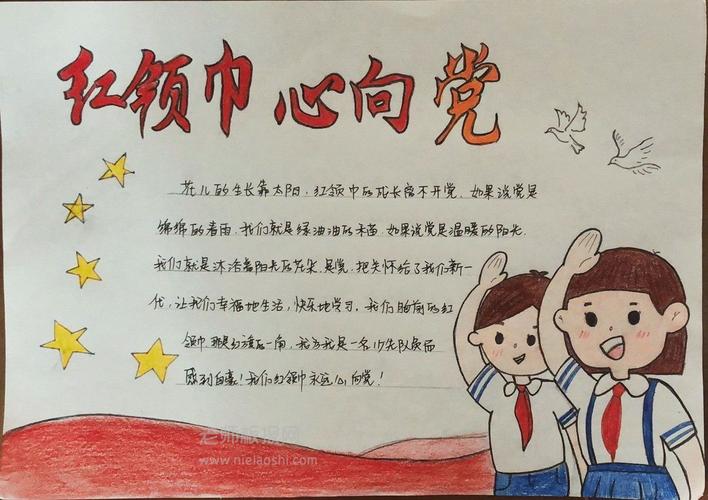 红领巾心向党
花儿的生长靠太阳,红领巾的成长离不开党.如果说党是
绵绵的春雨,我们就是绿油油的禾苗.如果说党是温暖的阳光.
我们就是沐浴着阳光的花朵.是党,把关怀给了我们新一
代,让我们幸福地生活,快乐地学习.我们胸前的红
领巾那是红旗的一角,我为我是一名少先队员而
感到自豪!我们红领巾永远心向党!
老师板报网
www.nielaoshi.com